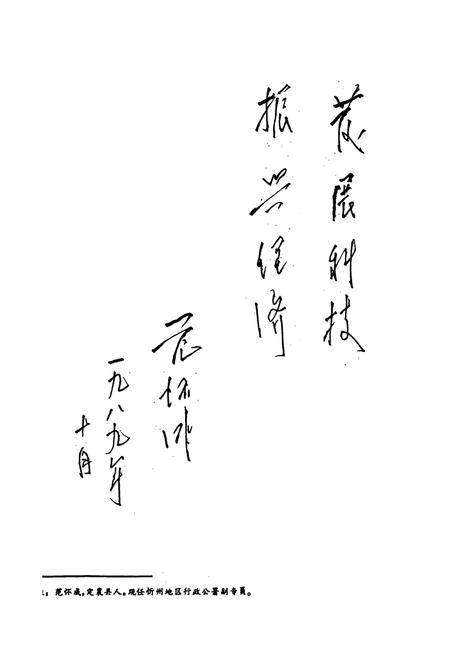 发展科技
振兴经济
范怀成
一九八九年
十月
：范怀成，定襄县人。现任忻州地区行政公署副专员。